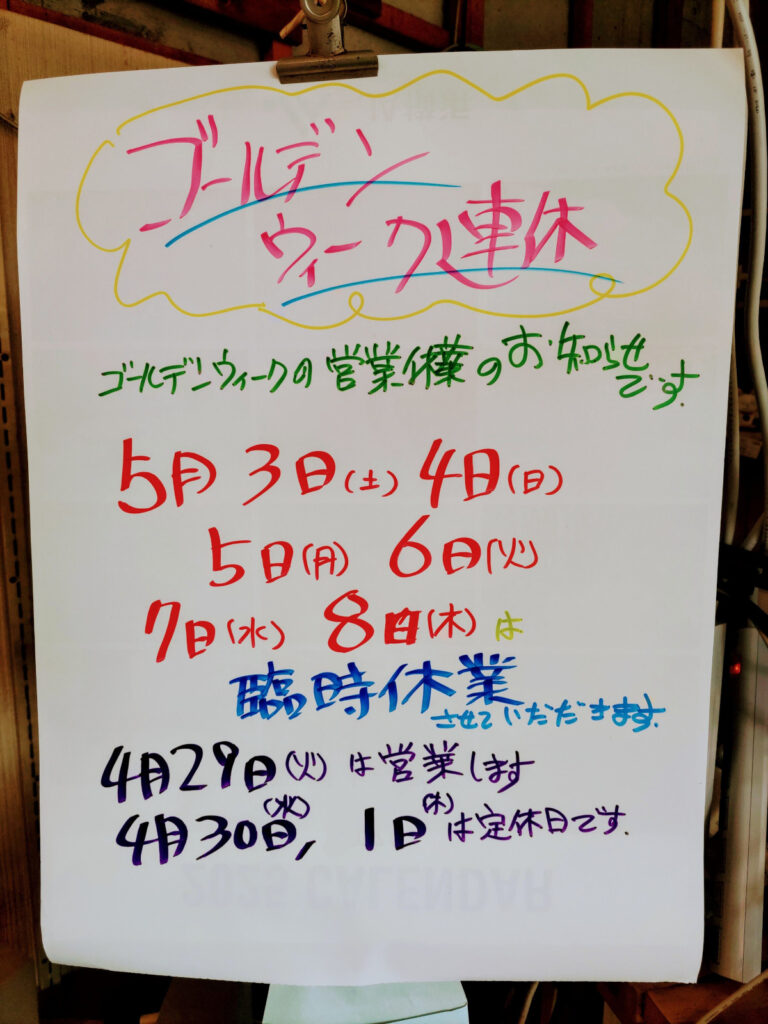 ゴールデン
ウィーク連休
ゴールデンウィークの営業休業のお知らせ
です.
5月3日(土)4日(日)
5日(月)6日(火)
7日(水)8日(木)は
臨時休業
させていただきます.
4月29日(火)は営業します
4月30日(水), 1日(木)は定休日です.
2025 CALENDAR